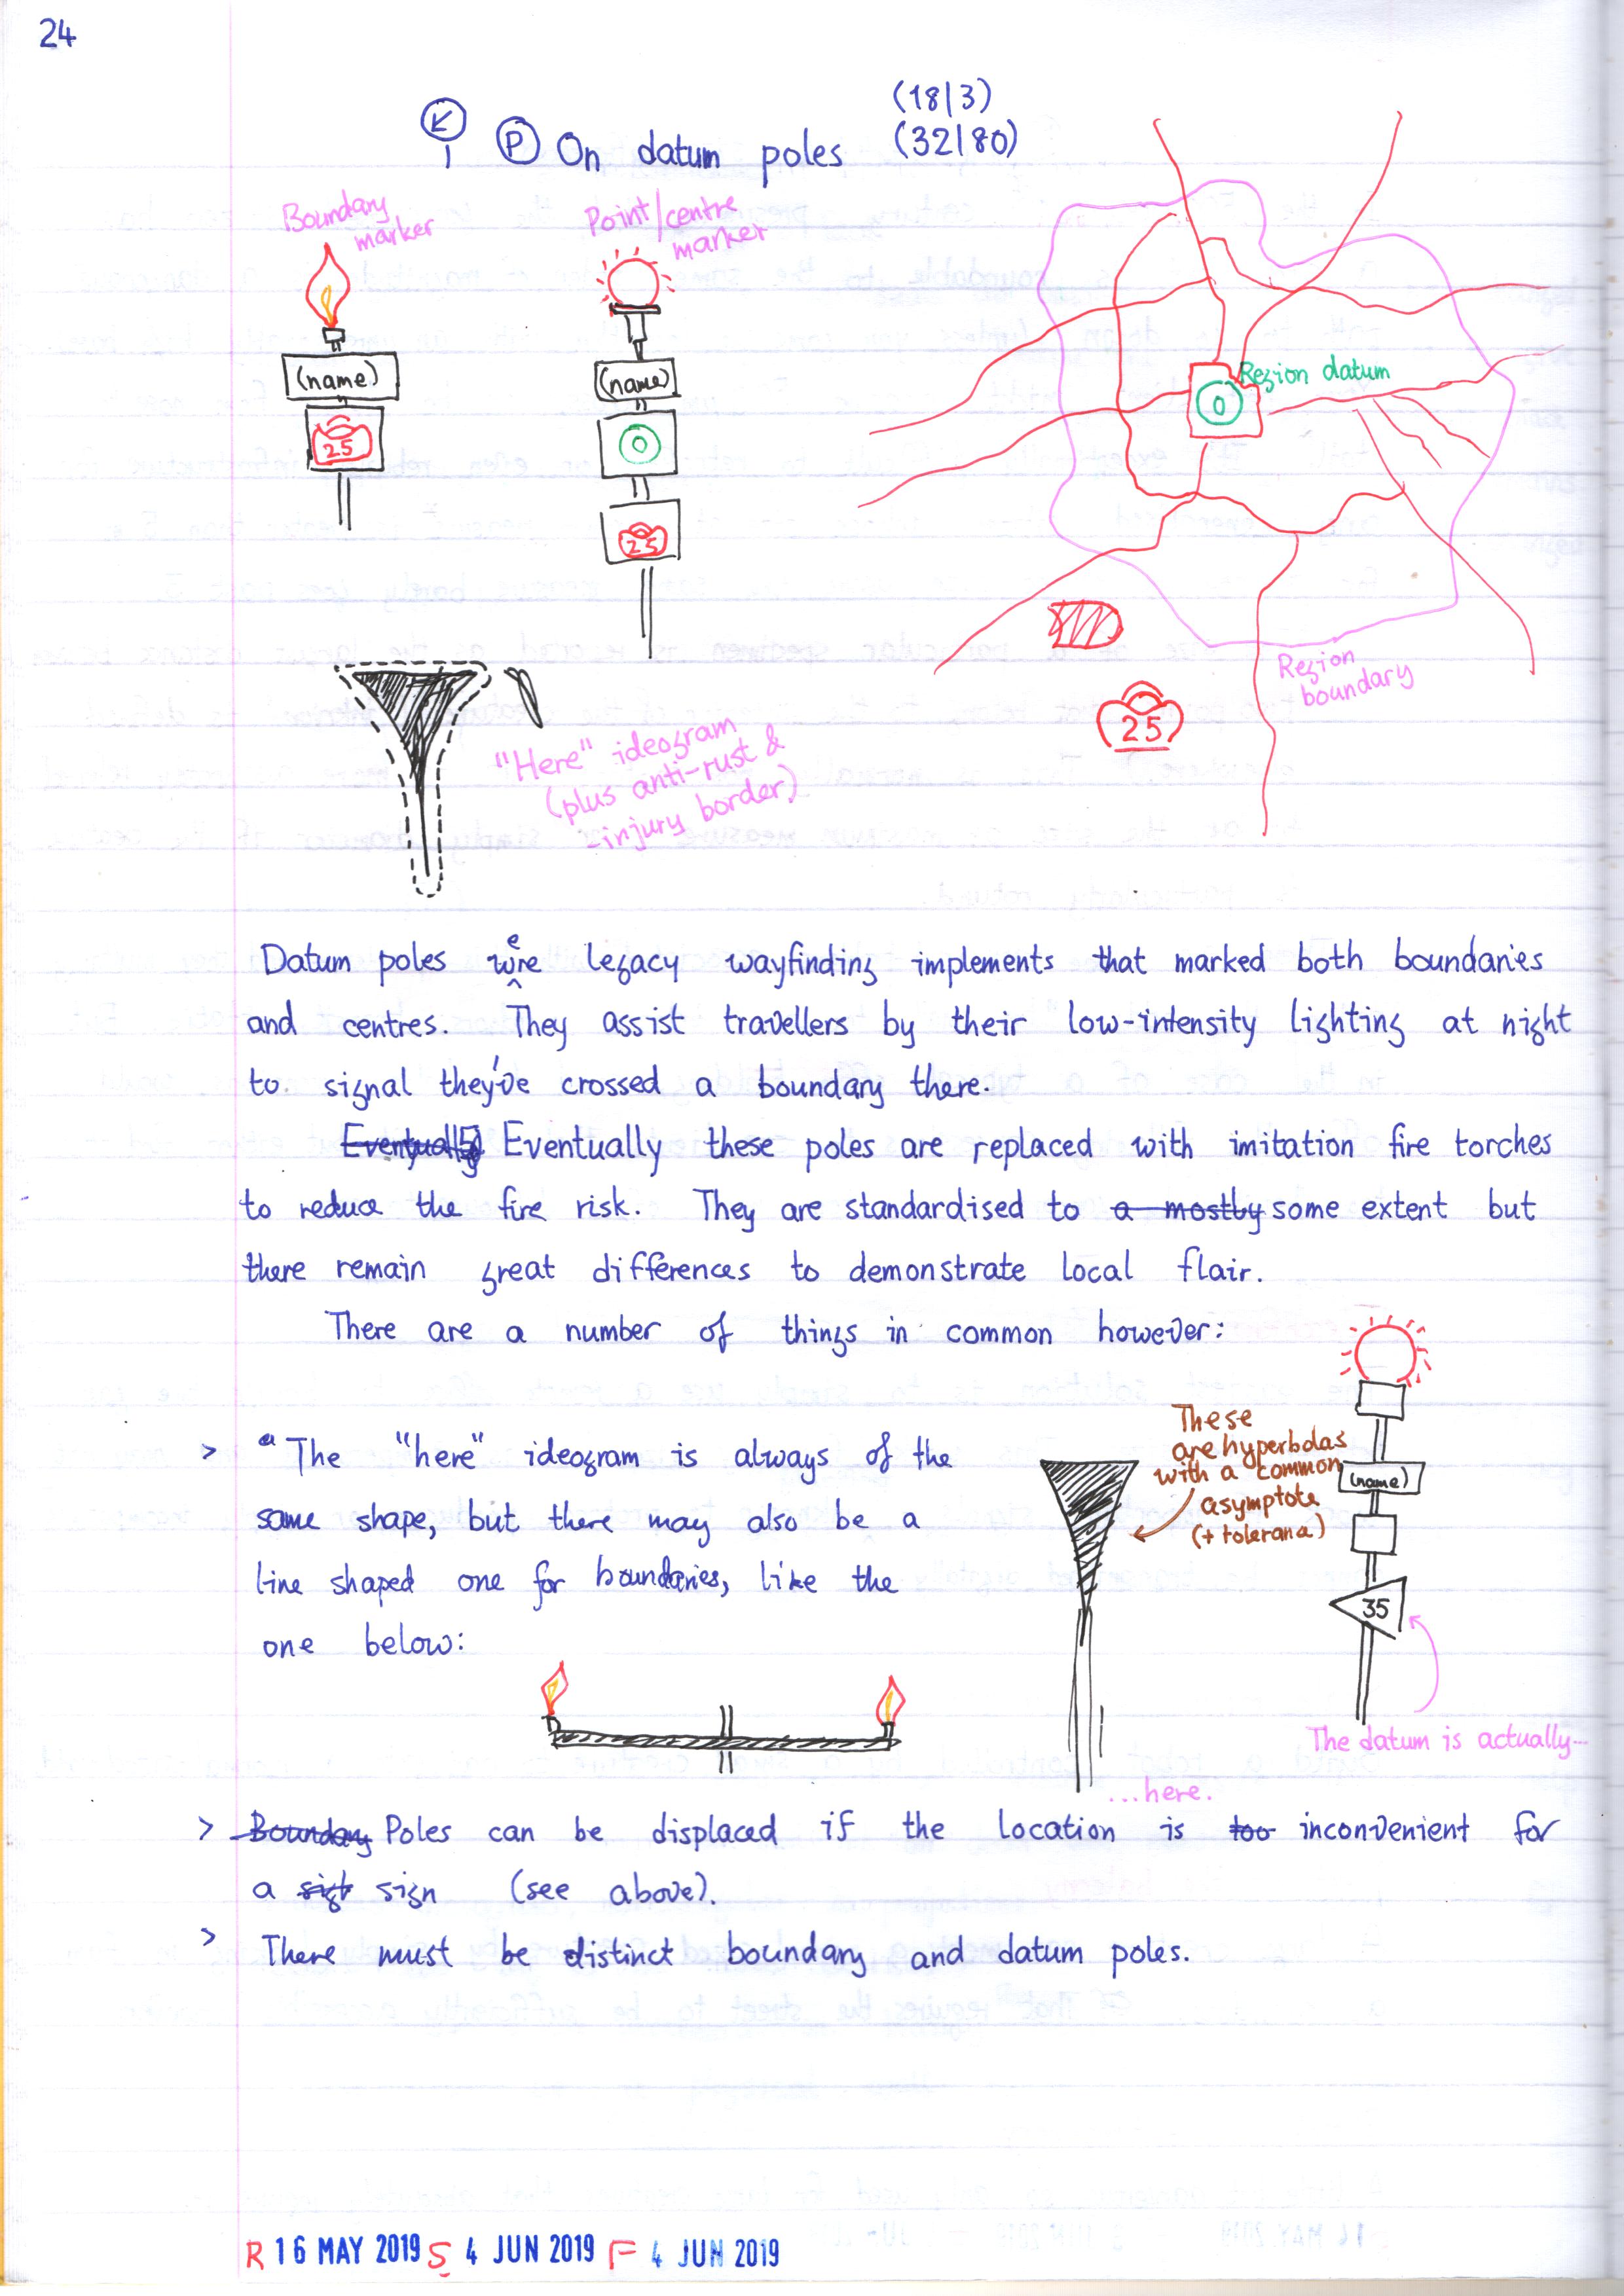 24
(18|3)
K P On datum poles (32|80)
Boundary
marker
Point/centre
marker
(name)
25
(name)
0
25
Region datum
0
Region
boundary
25
"Here" ideogram
(plus anti-rust &
-injury border)
Datum poles were legacy wayfinding implements that marked both boundaries
and centres. They assist travellers by their low-intensity lighting at night
to signal they've crossed a boundary there.
Eventually Eventually these poles are replaced with imitation fire torches
to reduce the fire risk. They are standardised to a mostly some extent but
there remain great differences to demonstrate local flair.
There are a number of things in common however:
> The "here" ideogram is always of the
same shape, but there may also be a
line shaped one for boundaries, like the
one below:
These
are hyperbolas
with a common
asymptote
(+ tolerance)
(name)
35
The datum is actually...
...here.
> Boundary Poles can be displaced if the location is too inconvenient for
a sign (see above).
> There must be distinct boundary and datum poles.
R 16 MAY 2019 S 4 JUN 2019 F 4 JUN 2019